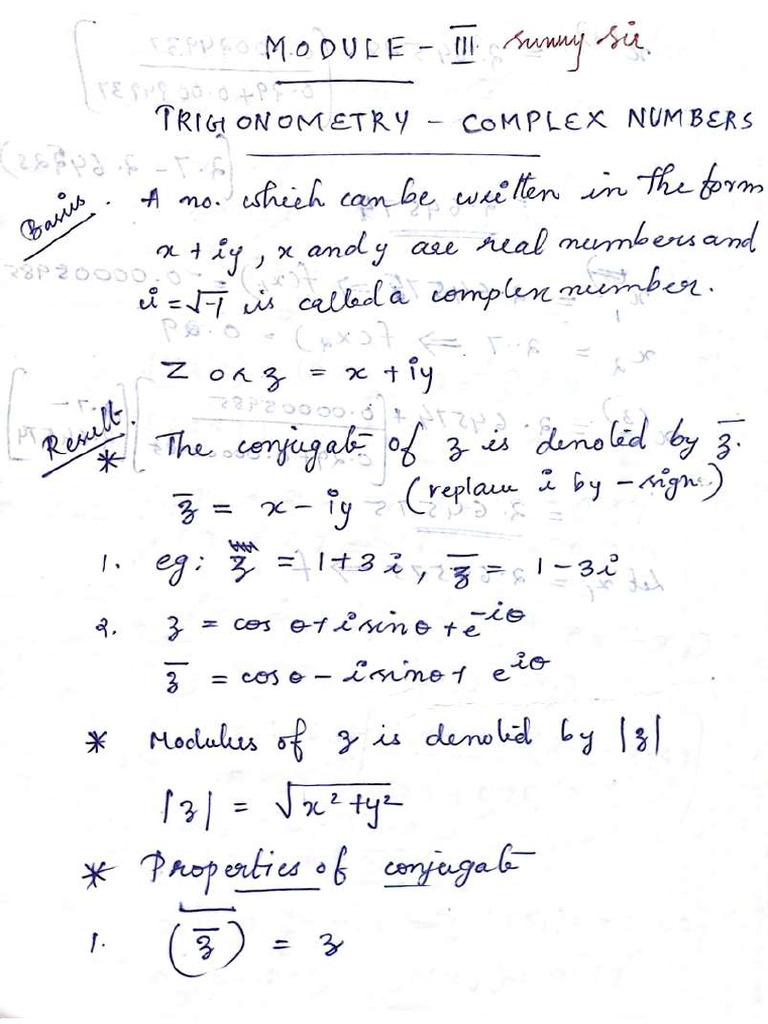 MODULE - III sunny sir.
TRIGONOMETRY - COMPLEX NUMBERS
Basis. A no. which can be written in the form
x + iy, x and y are real numbers and
i = √-1 is called a complex number.
Z or z = x + iy
Result.
* The conjugate of z is denoted by z̅.
z̅ = x - iy (replace i by - sign)
1. eg: z = 1 + 3i, z̅ = 1 - 3i
2. z = cos θ + i sin θ + e^-iθ
z̅ = cos θ - i sin θ + e^iθ
* Modulus of z is denoted by |z|
|z| = √x² + y²
* Properties of conjugate
1. (z̅)̅ = z